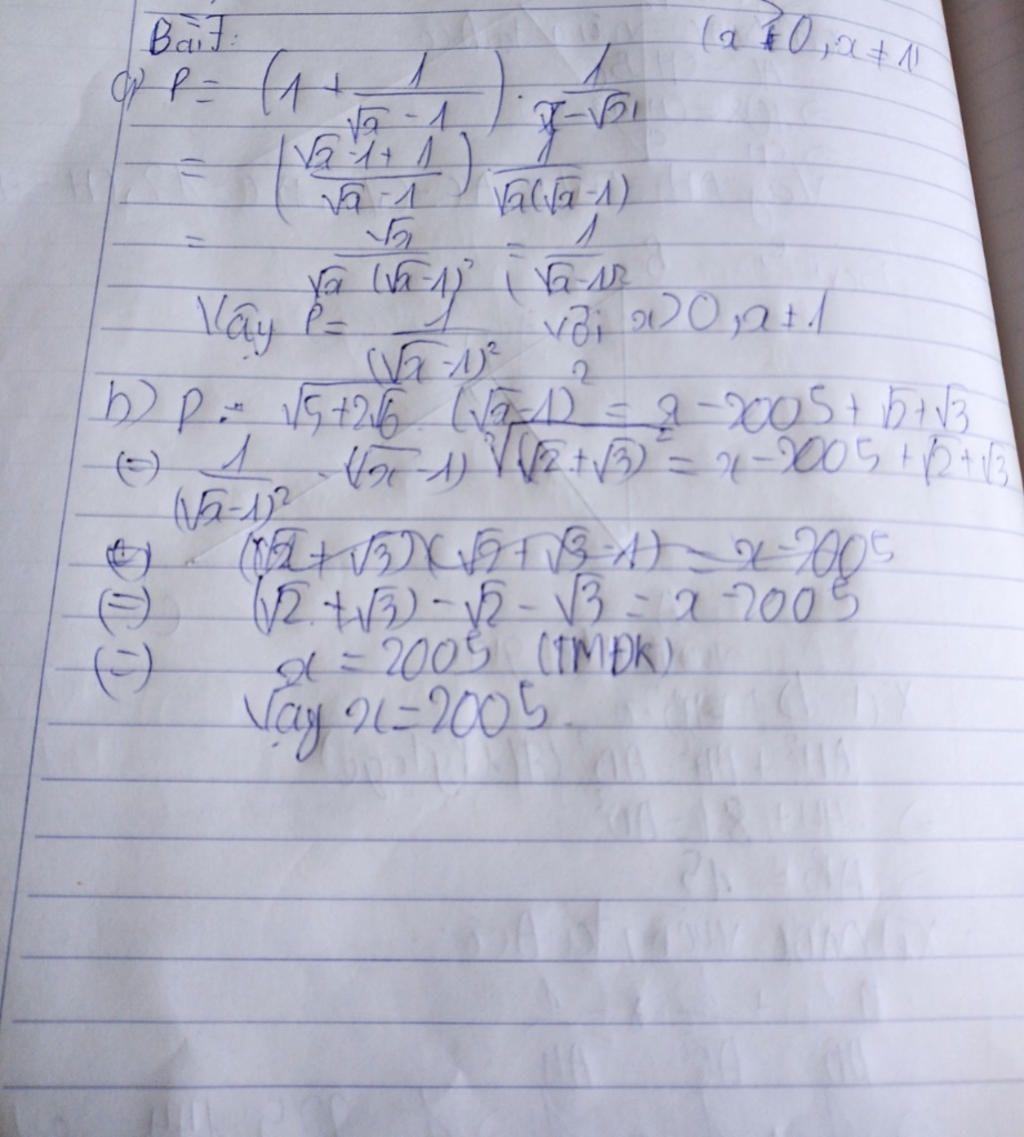 Bài 7: (x > 0, x ≠ 1)
a) P = (1 + 1/(√x - 1)) · 1/(x - √x)
= ((√x - 1 + 1)/(√x - 1)) 1/(√x(√x - 1))
= √x/(√x (√x - 1)²) = 1/(√x - 1)²
Vậy P = 1/(√x - 1)² với x > 0, x ≠ 1
b) P · √5+2√6 (√x - 1)² = x - 2005 + √2 + √3
(=) 1/(√x - 1)² · (√x - 1)² √(√2 + √3)² = x - 2005 + √2 + √3
(=) (√2 + √3) - √2 - √3 = x - 2005
(=) x = 2005 (TMĐK)
Vậy x = 2005.